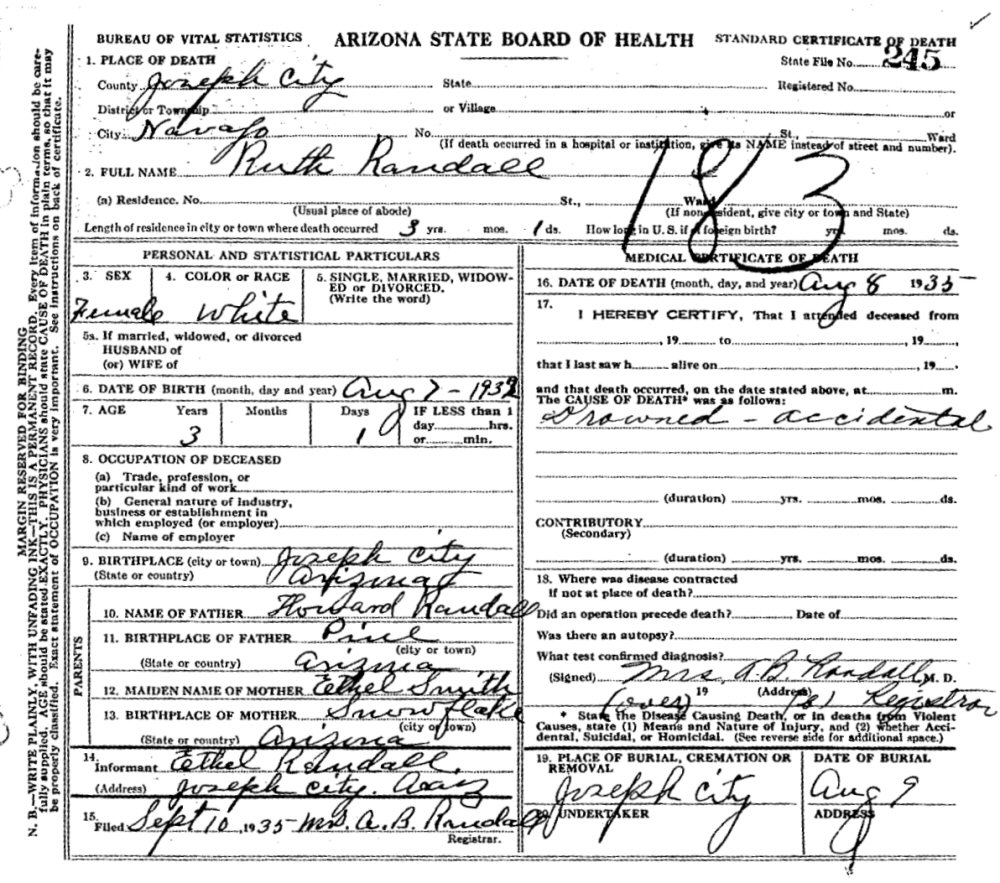 BUREAU OF VITAL STATISTICS ARIZONA STATE BOARD OF HEALTH STANDARD CERTIFICATE OF DEATH
1. PLACE OF DEATH State File No. 245
County Joseph City State Registered No.
District or Township or Village or
City Navajo No. St., Ward
(If death occurred in a hospital or institution, give its NAME instead of street and number).
2. FULL NAME Ruth Randall
183
(a) Residence. No. St., Ward
(Usual place of abode) (If nonresident, give city or town and State)
Length of residence in city or town where death occurred 3 yrs. mos. 1 ds. How long in U.S. if of foreign birth? yrs. mos. ds.
PERSONAL AND STATISTICAL PARTICULARS
3. SEX 4. COLOR or RACE 5. SINGLE, MARRIED, WIDOW-
ED or DIVORCED.
(Write the word)
Female White
5a. If married, widowed, or divorced
HUSBAND of
(or) WIFE of
6. DATE OF BIRTH (month, day and year) Aug 7 - 1932
7. AGE Years Months Days IF LESS than 1
day hrs.
or min.
3 1
8. OCCUPATION OF DECEASED
(a) Trade, profession, or
particular kind of work
(b) General nature of industry,
business or establishment in
which employed (or employer)
(c) Name of employer
9. BIRTHPLACE (city or town) Joseph City
(State or country) Arizona
PARENTS
10. NAME OF FATHER Howard Randall
11. BIRTHPLACE OF FATHER Pine
(city or town)
(State or country) Arizona
12. MAIDEN NAME OF MOTHER Ethel Smith
13. BIRTHPLACE OF MOTHER Snowflake
(city or town)
(State or country) Arizona
14.
Informant Ethel Randall.
(Address) Joseph City. Ariz
15.
Filed Sept 10, 1935 Mrs. A. B. Randall
Registrar.
MEDICAL CERTIFICATE OF DEATH
16. DATE OF DEATH (month, day, and year) Aug 8 1935
17.
I HEREBY CERTIFY, That I attended deceased from
, 19 to , 19
that I last saw h alive on , 19
and that death occurred, on the date stated above, at m.
The CAUSE OF DEATH* was as follows:
Drowned - accidental
(duration) yrs. mos. ds.
CONTRIBUTORY
(Secondary)
(duration) yrs. mos. ds.
18. Where was disease contracted
If not at place of death?
Did an operation precede death? Date of
Was there an autopsy?
What test confirmed diagnosis?
(Signed) Mrs. A. B. Randall, M. D.
(over) 19 (Address) Registrar
* State the Disease Causing Death, or in deaths from Violent
Causes, state (1) Means and Nature of Injury, and (2) whether Acci-
dental, Suicidal, or Homicidal. (See reverse side for additional space.)
19. PLACE OF BURIAL, CREMATION OR
REMOVAL
DATE OF BURIAL
Joseph City Aug 9
20. UNDERTAKER ADDRESS
MARGIN RESERVED FOR BINDING
N. B.—WRITE PLAINLY, WITH UNFADING INK—THIS IS A PERMANENT RECORD. Every item of information should be care-
fully supplied. AGE should be stated EXACTLY. PHYSICIANS should state CAUSE OF DEATH in plain terms, so that it may
be properly classified. Exact statement of OCCUPATION is very important. See instructions on back of certificate.